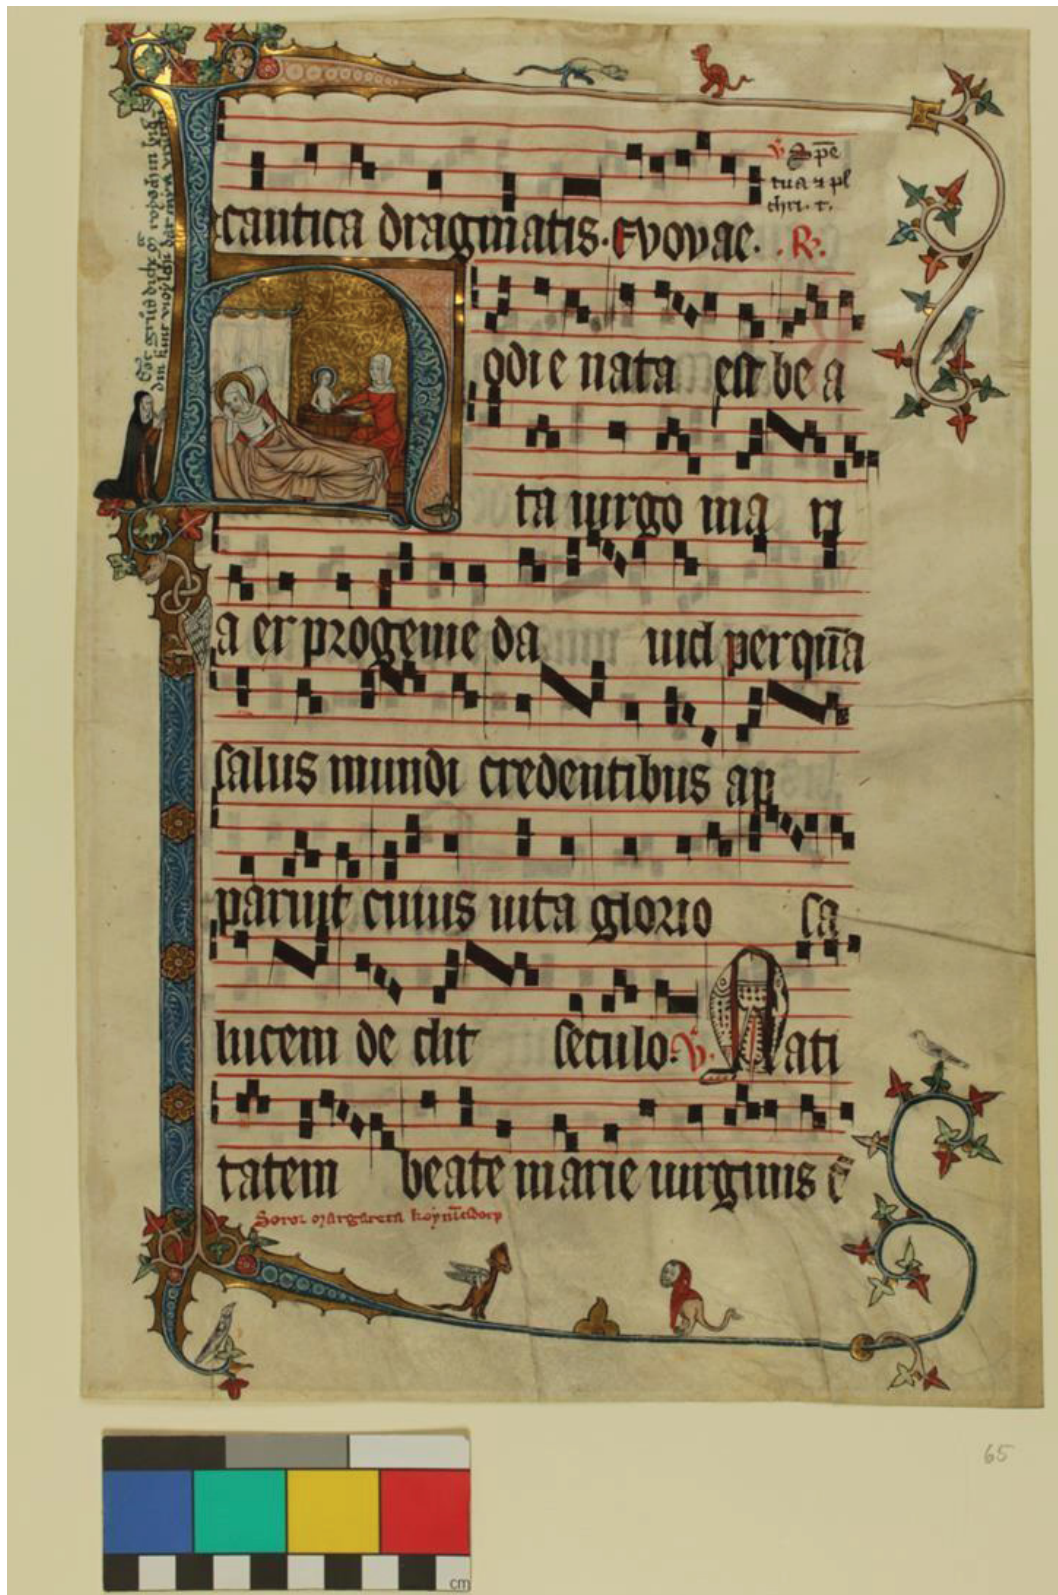 cantica dragmatis. Evovae. R.
V Spe
tua ⁊ pl
chri. t.
Hodie nata est be a
ta uirgo ma ri
a ex progenie da uid per quā
salus mundi credentibus ap
paruit cuius uita glorio sa
lucem de dit seculo. V. Nati
tatem beate marie uirginis
Soror margareta
65
cm